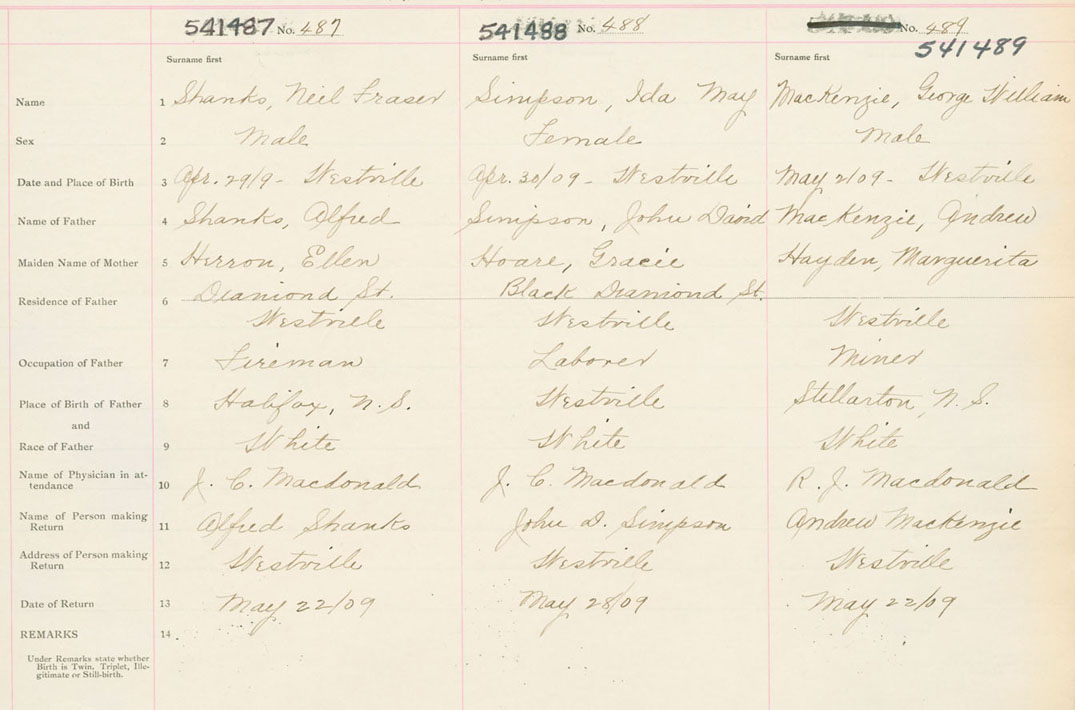 541487 No. 487 541488 No. 488 No. 489
541489
Surname first Surname first Surname first
Name 1 Shanks, Neil Fraser Simpson, Ida May MacKenzie, George William
Sex 2 Male Female Male
Date and Place of Birth 3 Apr. 29/9 - Westville Apr. 30/09 - Westville May 2/09 - Westville
Name of Father 4 Shanks, Alfred Simpson, John David MacKenzie, Andrew
Maiden Name of Mother 5 Herron, Ellen Hoare, Gracie Hayden, Marguerita
Residence of Father 6 Diamond St. Black Diamond St.
Westville Westville Westville
Occupation of Father 7 Fireman Laborer Miner
Place of Birth of Father 8 Halifax, N.S. Westville Stellarton, N.S.
and
Race of Father 9 White White White
Name of Physician in at-
tendance 10 J. C. Macdonald J. C. Macdonald R. J. Macdonald
Name of Person making
Return 11 Alfred Shanks John D. Simpson Andrew MacKenzie
Address of Person making
Return 12 Westville Westville Westville
Date of Return 13 May 22/09 May 28/09 May 22/09
REMARKS 14
Under Remarks state whether
Birth is Twin, Triplet, Ille-
gitimate or Still-birth.